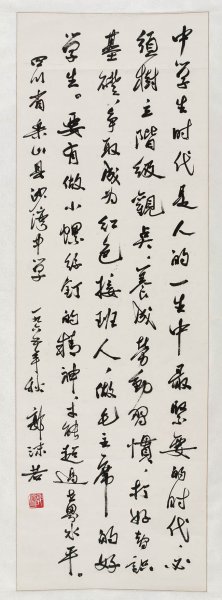 中学生时代是人的一生中最紧要的时代，必
须树立阶级观点，养成劳动习惯，打好智识
基础，争取成为红色接班人，做毛主席的好
学生。要有做小螺丝钉的精神，才能超过世界水平。
四川省乐山县沙湾中学
一九六五年秋 郭沫若